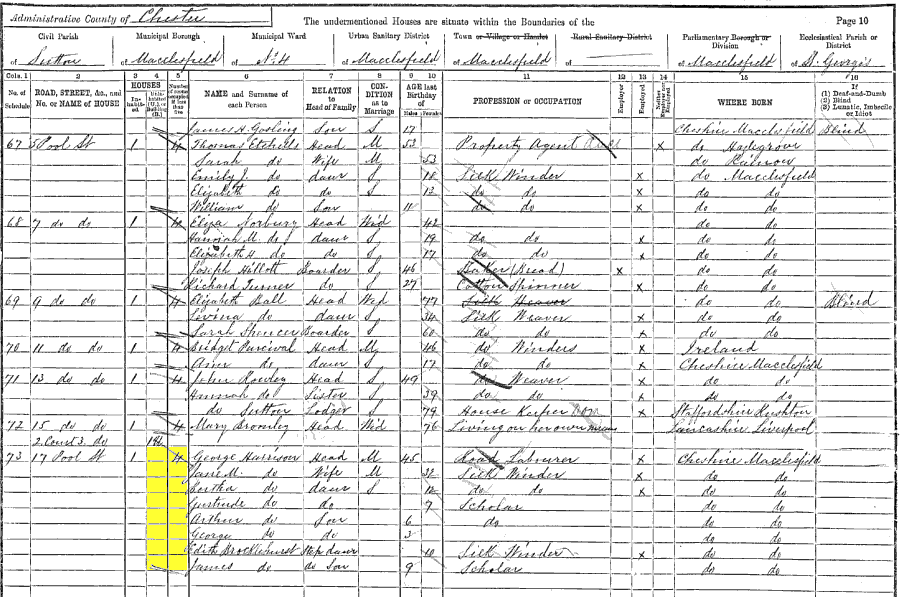 Administrative County of Chester
The undermentioned Houses are situate within the Boundaries of the
Page 10
Civil Parish of Sutton
Municipal Borough of Macclesfield
Municipal Ward of No. 4
Urban Sanitary District of Macclesfield
Town or Village or Hamlet of Macclesfield
Rural Sanitary District of
Parliamentary Borough or Division of Macclesfield
Ecclesiastical Parish or District of St. George's
Cols. 1 2 3 4 5 6 7 8 9 10 11 12 13 14 15 16
No. of Schedule
ROAD, STREET, &c., and No. or NAME of HOUSE
HOUSES
Inhabited
Uninhabited (U.), or Building (B.)
Number of rooms occupied if less than five
NAME and Surname of each Person
RELATION to Head of Family
CONDITION as to Marriage
AGE last Birthday of
Males Females
PROFESSION or OCCUPATION
Employer
Employed
Neither Employer nor Employed
WHERE BORN
If (1) Deaf-and-Dumb (2) Blind (3) Lunatic, Imbecile or Idiot
James A. Gosling Son S 17 Cheshire Macclesfield Blind
67 5 Pool St 1 4 Thomas Etchells Head M 53 Property Agent x do Hazlegrove
Sarah do Wife M 53 do
Emily J. do daur S 18 Silk Winder x do Macclesfield
Elizabeth do do S 13 do do x do do
William do Son 11 do do x do do
68 7 do do 1 4 Eliza Norbury Head Wid 42 do do
Hannah M. do daur S 19 do do x do do
Elizabeth H. do do S 17 do do x do do
Joseph Hillott Boarder S 46 Baker (Bread) x do do
Richard Turner do S 27 Cotton Spinner x do do
69 9 do do 1 4 Elizabeth Ball Head Wid 77 Silk Weaver do do Blind
Levina do daur S 34 Silk Weaver x do do
Sarah Spencer Boarder S 60 do do x do do
70 11 do do 1 4 Bridget Purcival Head M 46 do Winders x Ireland
Ann do daur S 17 do do x Cheshire Macclesfield
71 13 do do 1 4 John Rowley Head S 49 do Weaver x do do
Hannah do Sister S 39 do do x do do
do Sutton Lodger S 79 House Keeper x Staffordshire Rushton
72 15 do do 1 4 Mary Bromley Head Wid 76 Living on her own means Lancashire Liverpool
2 Court 3 do 1U
73 17 Pool St 1 4 George Harrison Head M 45 Road Labourer x Cheshire Macclesfield
Jane M. do Wife M 32 Silk Winder x do do
Bertha do daur S 12 do do x do do
Gertrude do do 7 Scholar do do
Arthur do Son 6 do do do
George do do 3 do do
Edith Brocklehurst Step daur 10 Silk Winder x do do
James do do Son 9 Scholar do do